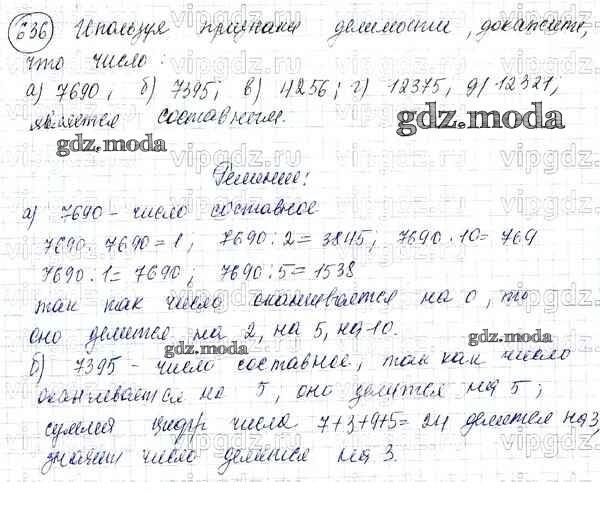 636 Используя признаки делимости, докажите,
что число:
а) 7690, б) 7395; в) 4256; г) 12375, д) 12321;
является составным.
gdz.moda
gdz.moda
Решение:
а) 7690 - число составное
7690 : 7690 = 1; 7690 : 2 = 3845; 7690 : 10 = 769
7690 : 1 = 7690; 7690 : 5 = 1538
так как число оканчивается на 0, то
оно делится на 2, на 5, на 10.
gdz.moda
gdz.moda
б) 7395 - число составное, так как число
оканчивается на 5, оно делится на 5;
сумма цифр числа 7+3+9+5=24 делится на 3,
значит число делится на 3.